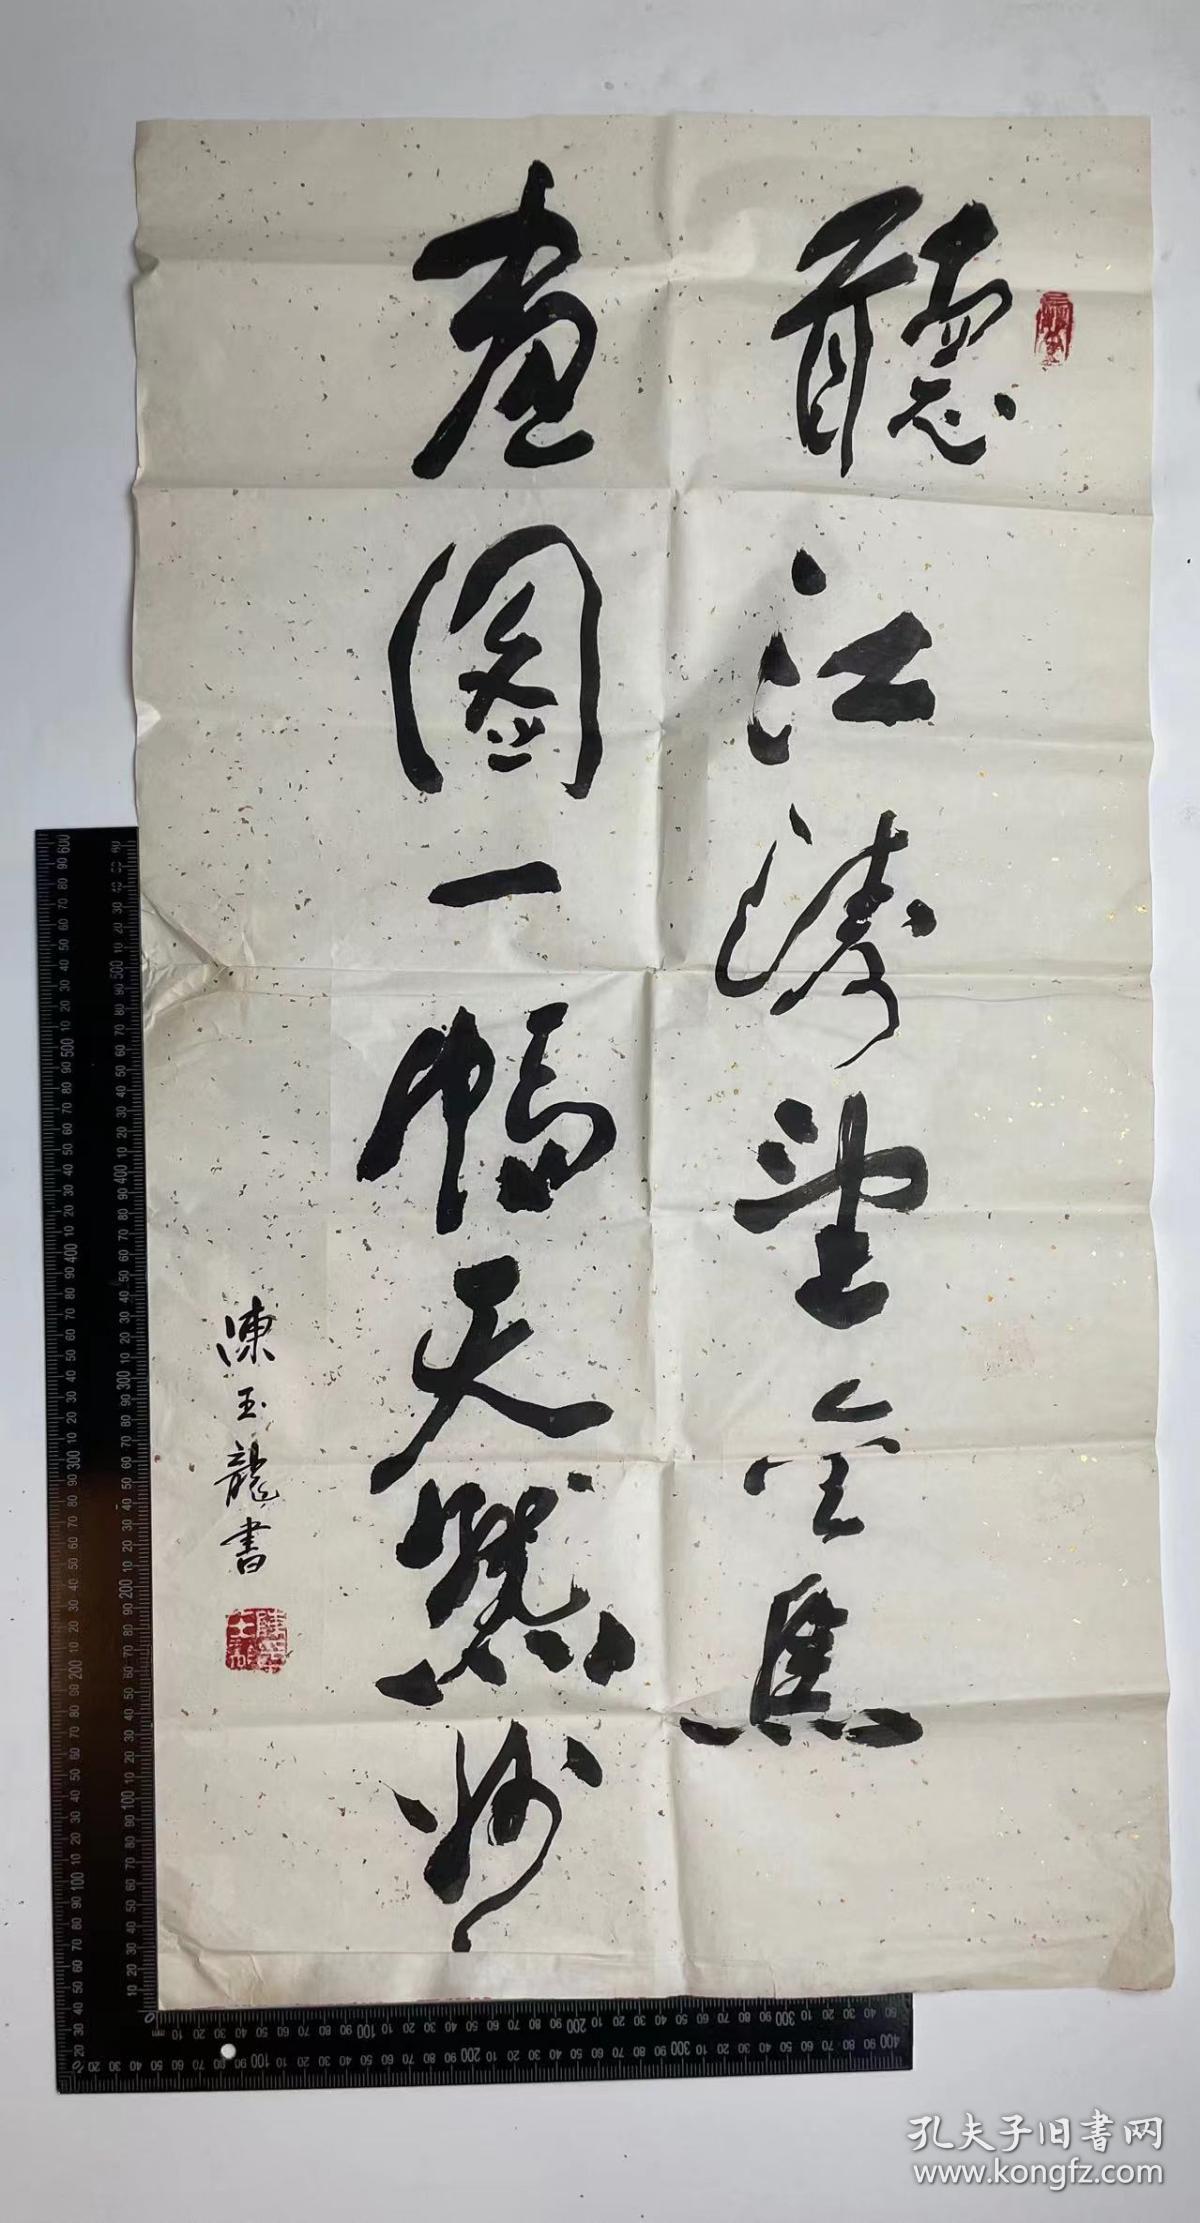 聽江濤望金焦
畫圖一幅天然妙
陳玉龍書
孔夫子旧書网
www.kongfz.com